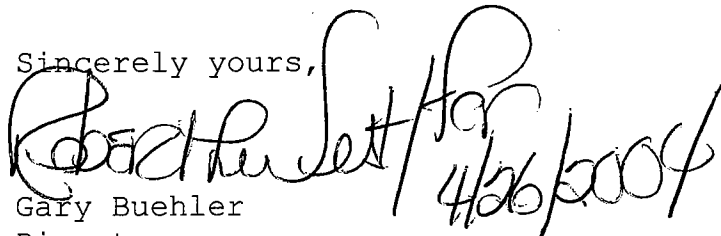 Sincerely yours,
Robert L West/for
4/26/2004/
Gary Buehler